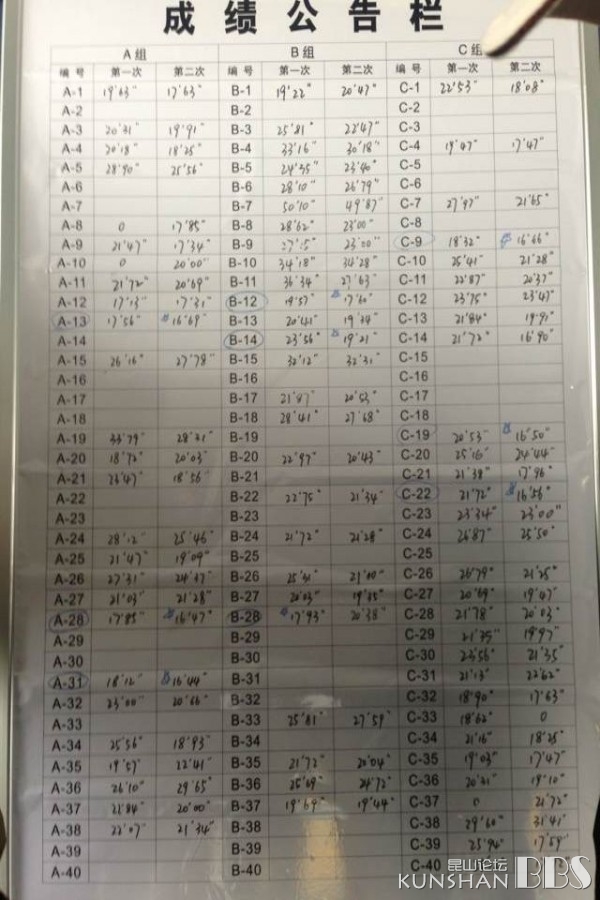 成绩公告栏
A组 B组 C组
编号 第一次 第二次 编号 第一次 第二次 编号 第一次 第二次
A-1 19'63" 17'63" B-1 19'22" 20'47" C-1 22'53" 18'08"
A-2 B-2 C-2
A-3 20'31" 19'91" B-3 25'81 22'47" C-3
A-4 20'18" 18'25" B-4 33'16" 30'18" C-4 19'47" 17'47"
A-5 28'90" 25'56" B-5 24'35" 23'40" C-5
A-6 B-6 28'10" 26'79" C-6
A-7 B-7 50'10" 49'87" C-7 27'97" 21'65"
A-8 0 17'85" B-8 28'62" 23'00" C-8
A-9 21'47" 17'34" B-9 23'00" C-9 18'32" 16'66"
A-10 0 20'00" B-10 34'18" 34'28" C-10 25'41" 21'28"
A-11 21'72" 20'69" B-11 36'34" 27'63" C-11 22'87" 20'37"
A-12 17'13" 17'31" B-12 19'57" 17'60" C-12 23'75" 23'47"
A-13 17'56" 16'69" B-13 20'41" C-13 21'84" 19'91"
A-14 B-14 23'56" 19'21" C-14 21'72" 16'90"
A-15 26'16" 27'78" B-15 32'12" 32'31" C-15
A-16 B-16 C-16
A-17 B-17 21'87" 20'53" C-17
A-18 B-18 28'41" 27'68" C-18
A-19 33'79" 28'21" B-19 C-19 20'53" 16'50"
A-20 18'72" 20'03" B-20 22'97" 20'43" C-20 25'16" 24'44"
A-21 18'56" B-21 C-21 21'38" 17'96"
A-22 B-22 22'75" 21'34" C-22 21'72" 16'56"
A-23 B-23 C-23 23'34" 23'00"
A-24 28'12" 25'46" B-24 21'72" 21'28" C-24 26'87" 25'50"
A-25 21'47" 19'09" B-25 C-25
A-26 27'31" B-26 21'00" C-26 26'79" 21'25"
A-27 21'03" 21'28" B-27 20'03" C-27 20'69" 19'47"
A-28 17'85" 16'47" B-28 17'93" 20'38" C-28 21'78" 20'03"
A-29 B-29 C-29 19'97"
A-30 B-30 C-30 23'56" 21'35"
A-31 18'12" 16'44" B-31 C-31 21'13" 22'62"
A-32 23'00" 20'66" B-32 C-32 18'90" 17'63"
A-33 B-33 25'81" 27'59" C-33 18'62" 0
A-34 25'56" 18'93" B-34 C-34 21'16" 18'25"
A-35 19'57 22'41" B-35 21'72" 20'04" C-35 19'03" 17'47"
A-36 26'10" 29'65" B-36 24'72" C-36 20'31" 19'10"
A-37 21'84" 20'00" B-37 19'69" 19'44" C-37 0 21'72"
A-38 22'07" 21'34" B-38 C-38 29'60" 31'41"
A-39 B-39 C-39 25'94" 17'59"
A-40 B-40 C-40
昆山论坛
KUNSHAN BBS